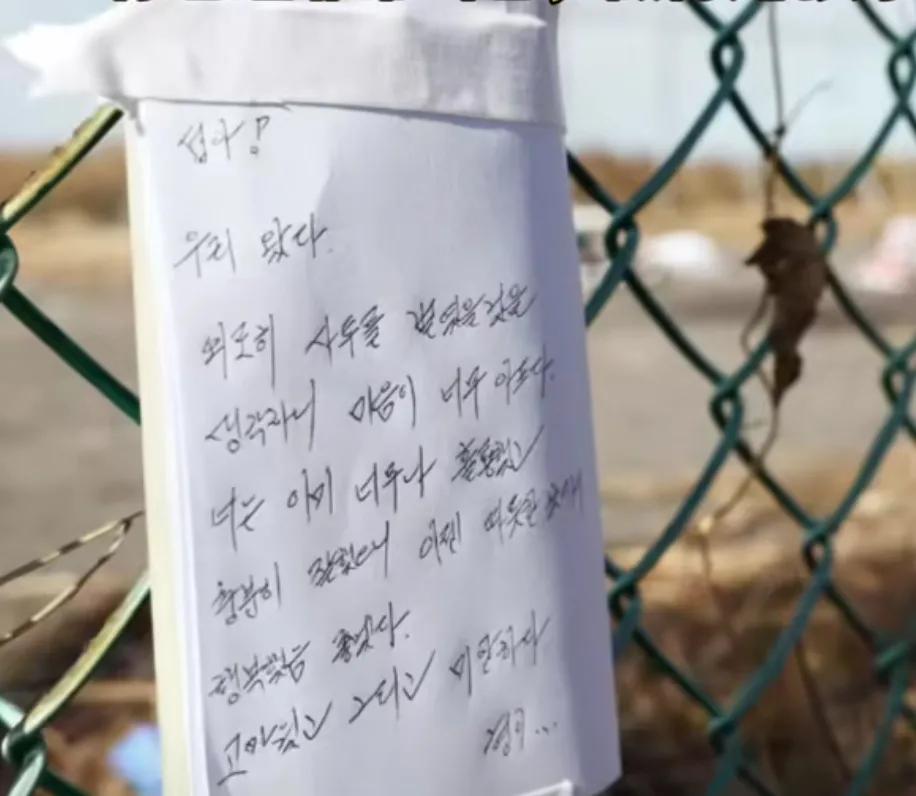 섭아!
우리 왔다.
외로히 사투를 벌였을 것을
생각하니 마음이 너무 아프다.
너는 이미 너무나 훌륭했고
충분히 잘했으니 이젠 따뜻한 곳에서
행복했음 좋겠다.
고마웠고 그리고 미안하다
형이...